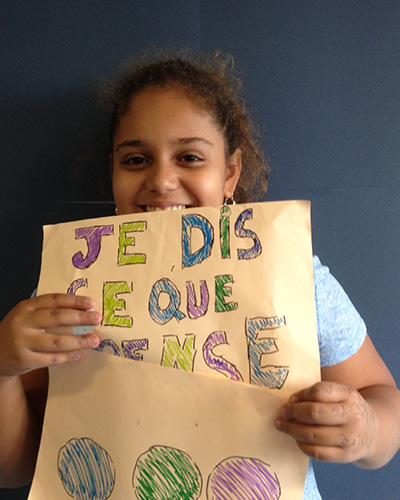 JE DiS
CE QUE
PENSE